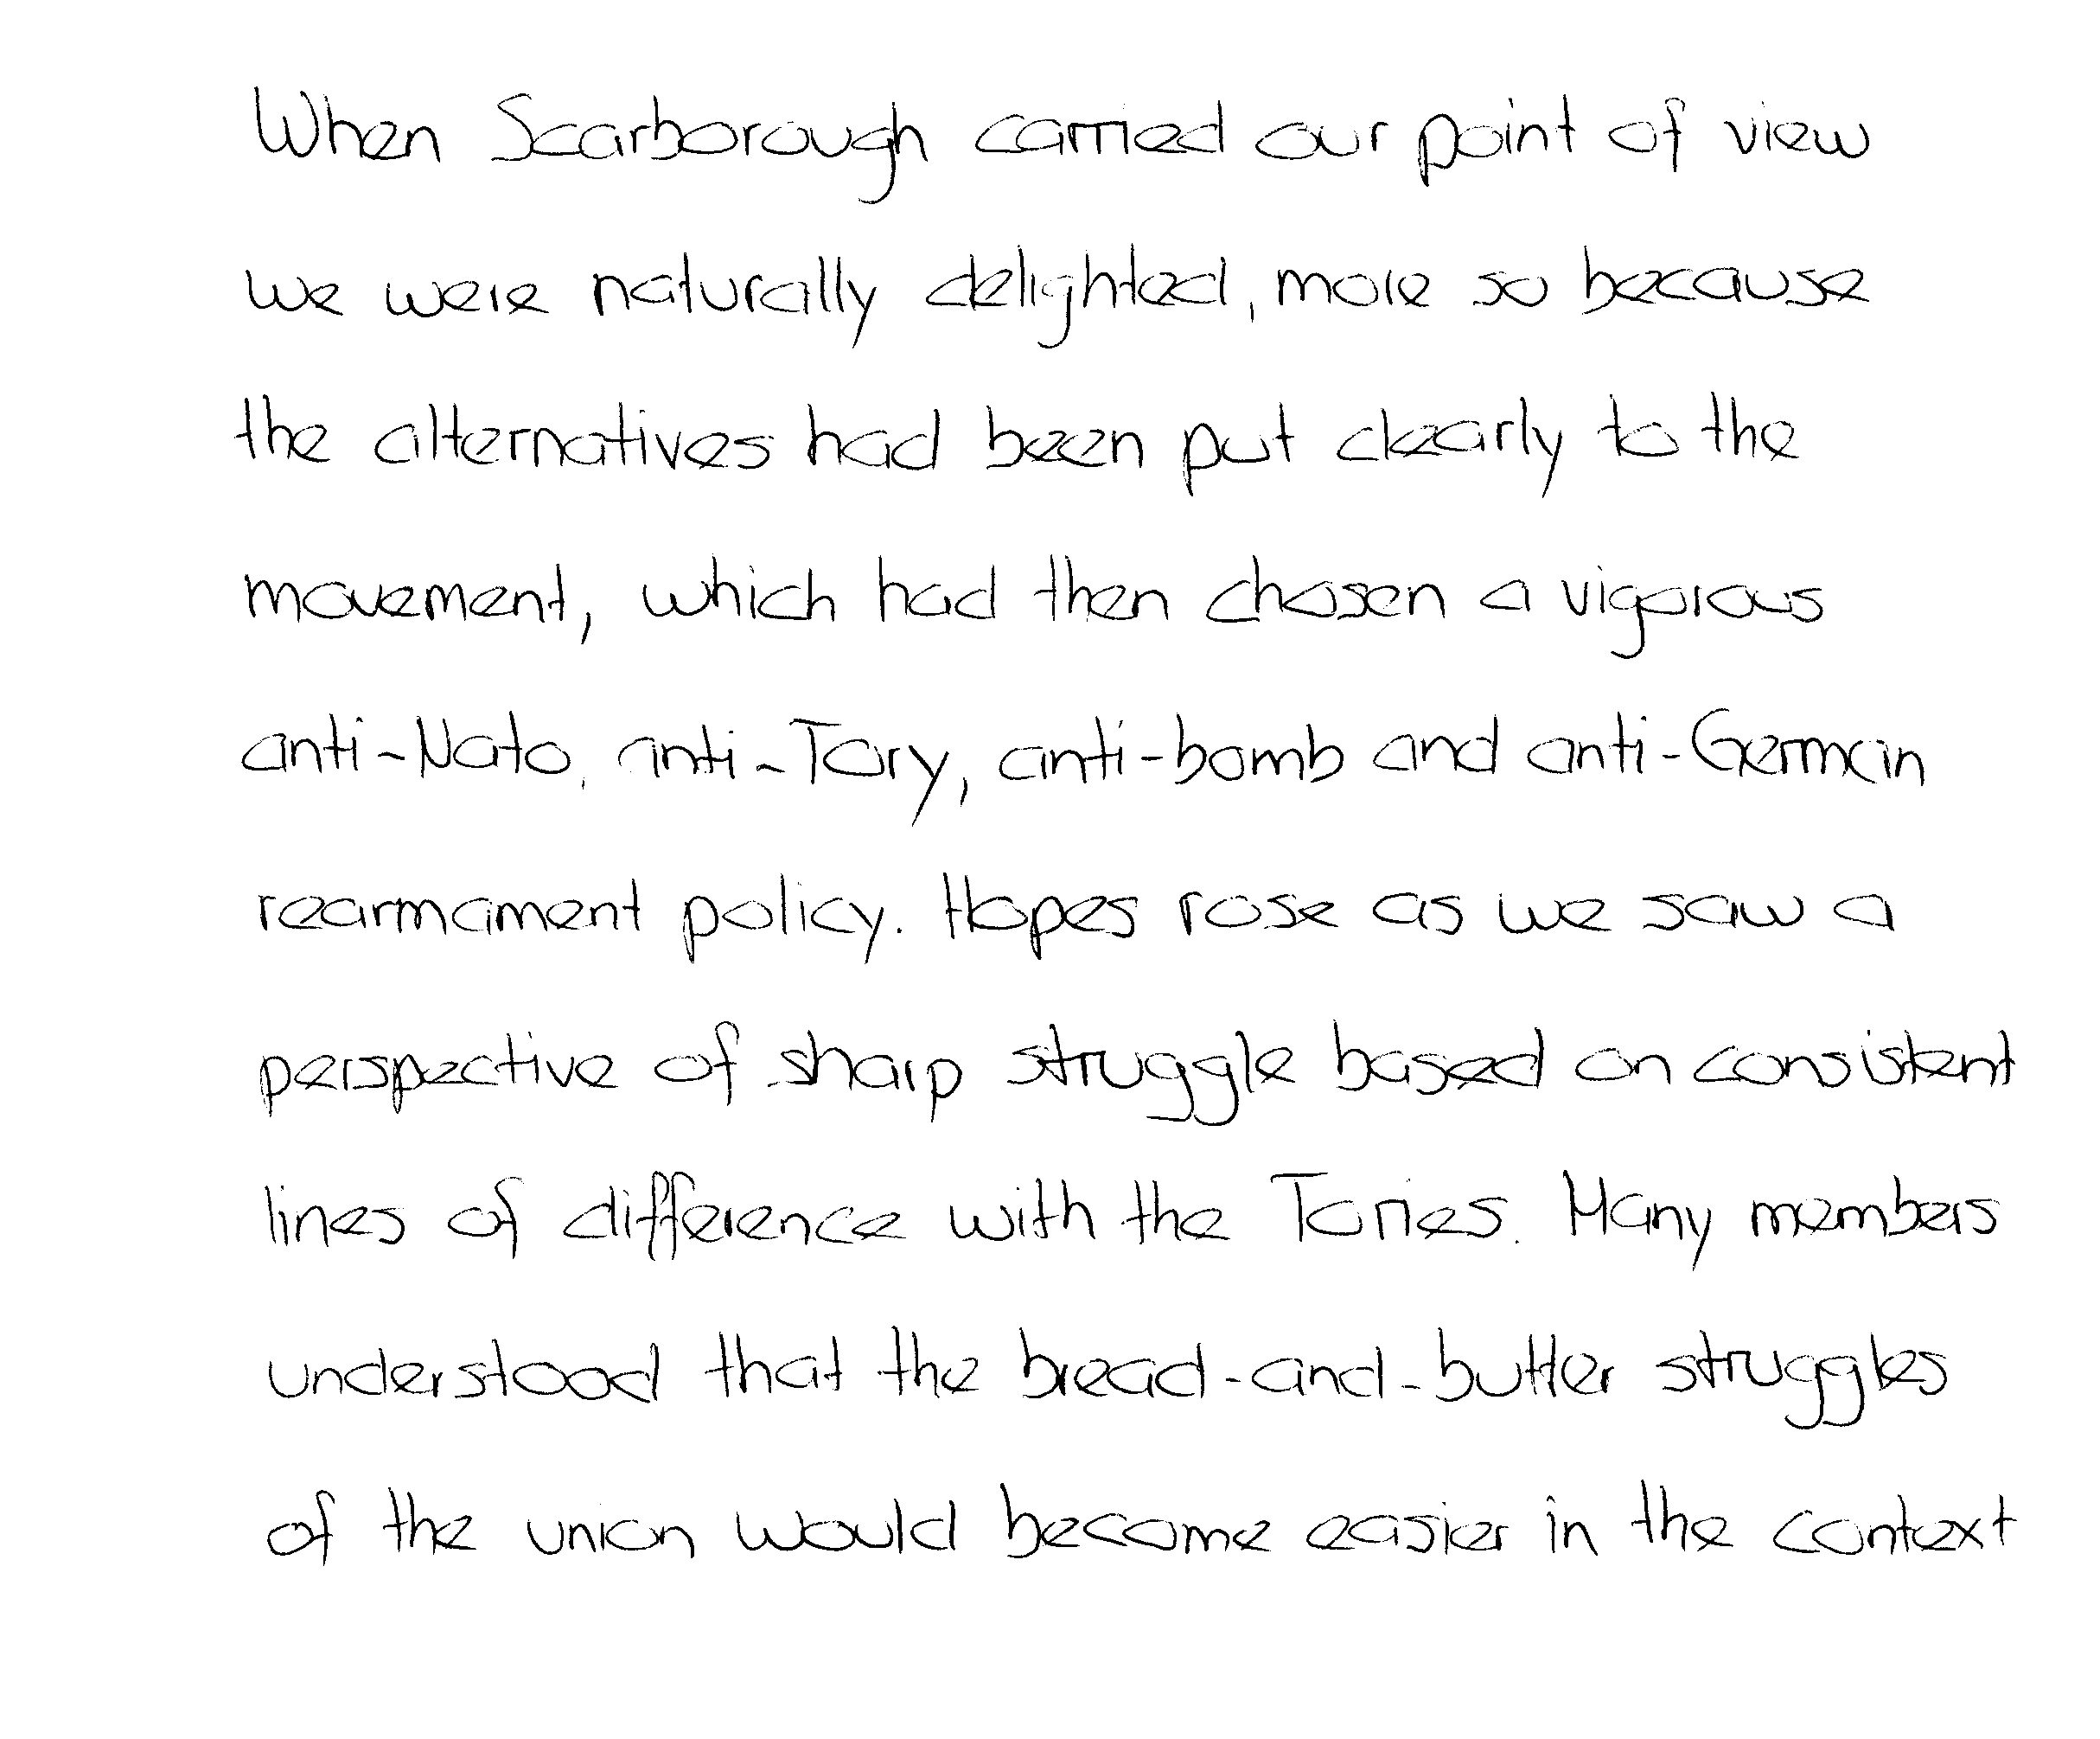 When Scarborough carried our point of view
we were naturally delighted, more so because
the alternatives had been put clearly to the
movement, which had then chosen a vigorous
anti-Nato, anti-Tory, anti-bomb and anti-German
rearmament policy. Hopes rose as we saw a
perspective of sharp struggle based on consistent
lines of difference with the Tories. Many members
understood that the bread-and-butter struggles
of the union would become easier in the context